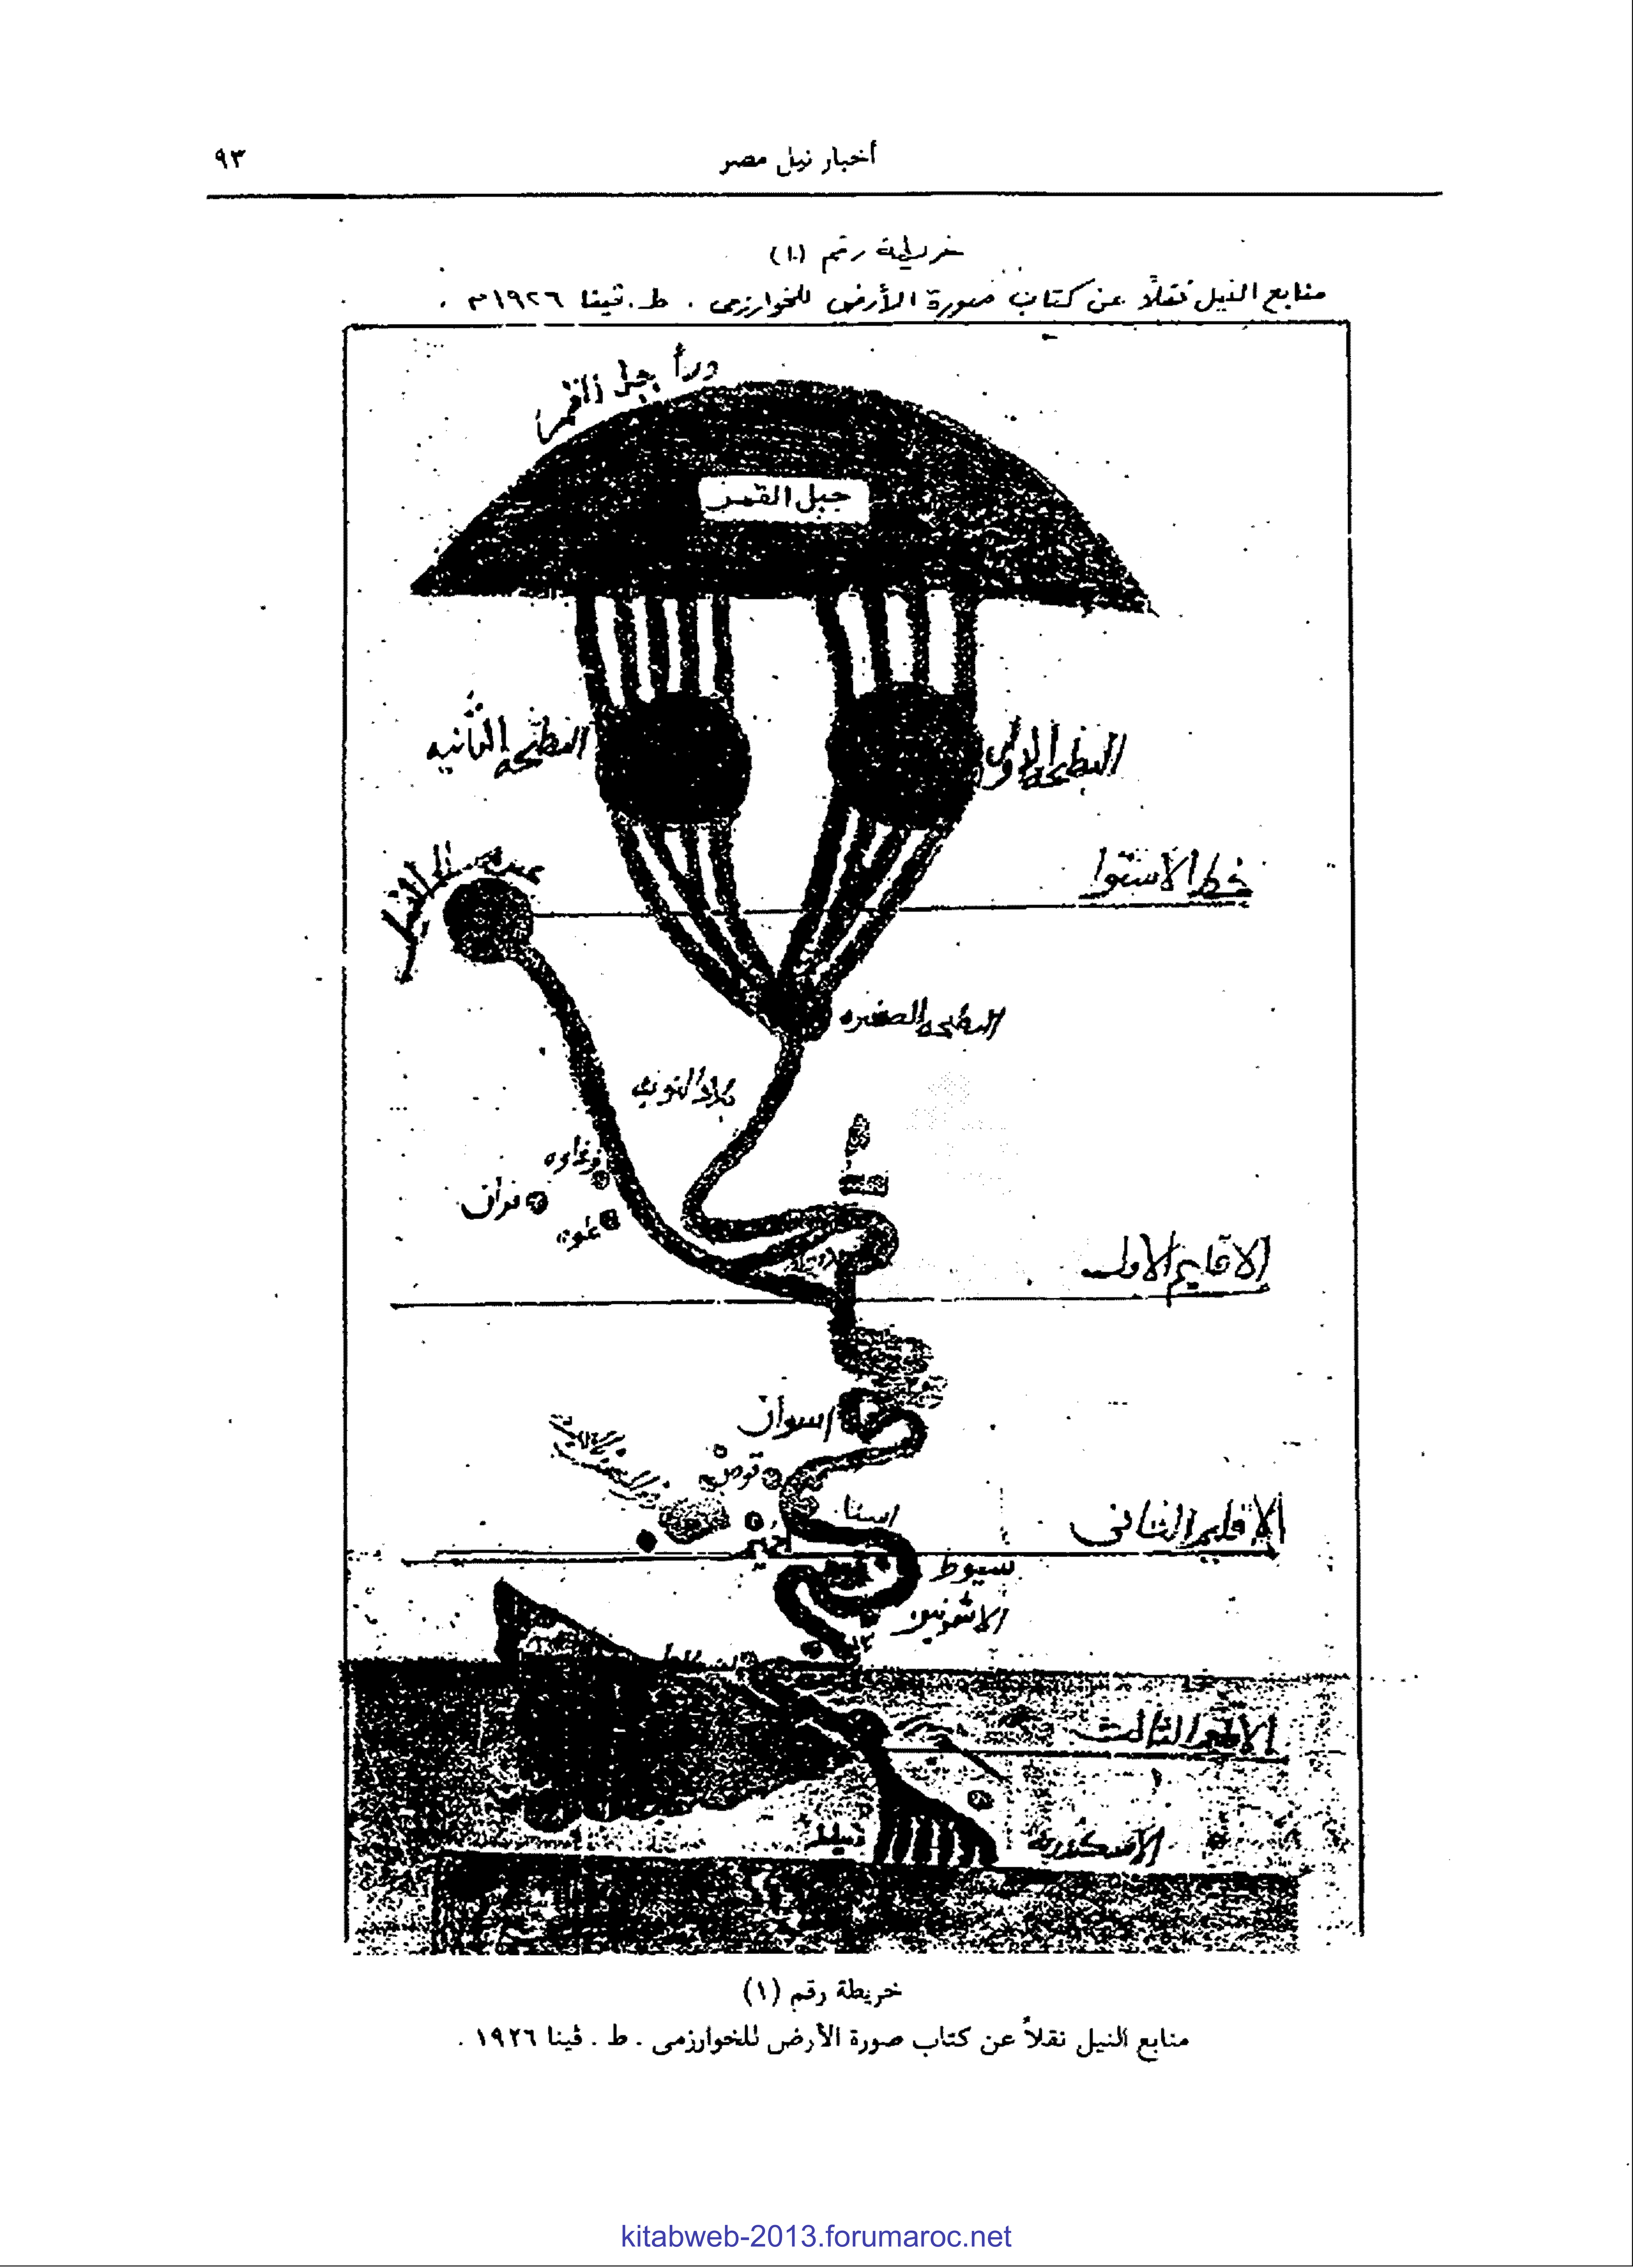 أخبار نيل مصر ٩٣
خريطة رقم (١)
منابع النيل نقلاً عن كتاب صورة الأرض للخوارزمى . ط . ڤينا ١٩٢٦م .
ورا جبل القمر
جبل القمر
البطيحه الثانيه
البطيحه الاولى
خط الاستوا
البطيحه الصغيره
بلاد النوبه
زغاوه
فزان
علوه
الاقليم الاول
اسوان
قوص
اسنا
الاقليم الثانى
اخميم
سيوط
الاشمونين
الاقليم الثالث
الاسكندريه
خريطة رقم (١)
منابع النيل نقلاً عن كتاب صورة الأرض للخوارزمى . ط . ڤينا ١٩٢٦ .
kitabweb-2013.forumaroc.net